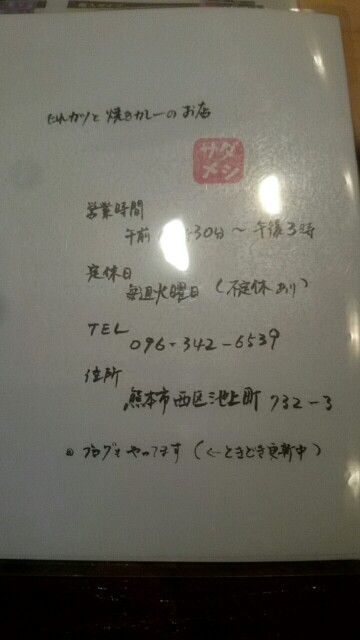 たれカツと焼きカレーのお店
サダ
メシ
営業時間
午前 時30分～午後3時
定休日
毎週火曜日(不定休あり)
TEL
096-342-6539
住所
熊本市西区池上町 732-3
ブログもやってます(←ときどき更新中)